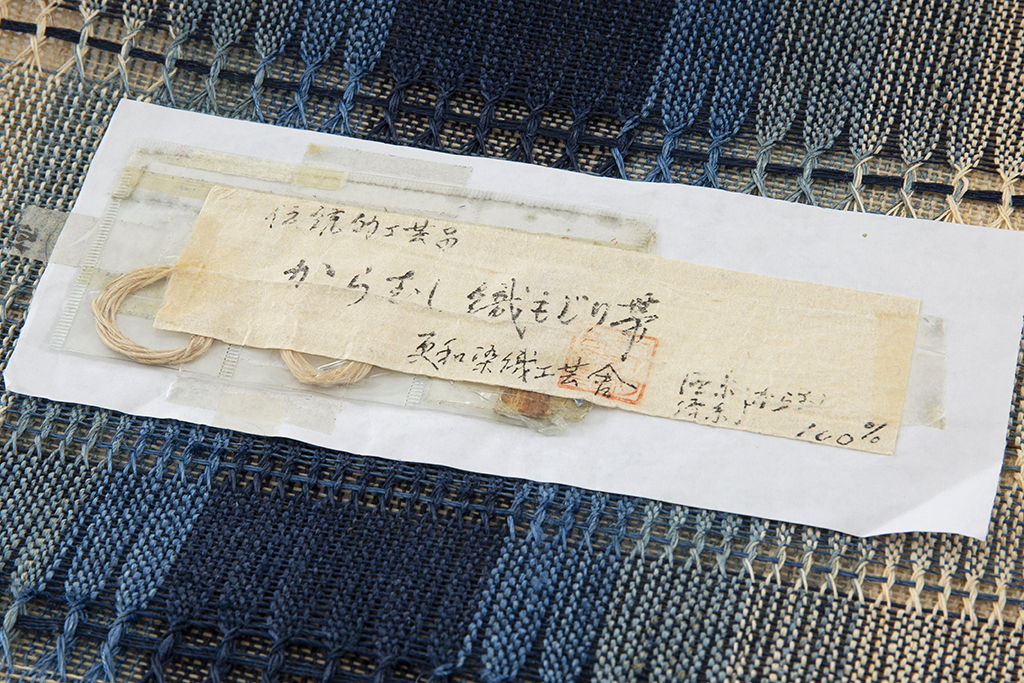 伝統的工芸品
からむし織もじり帯
更和染織工芸舎
経糸からむし
緯糸
100%